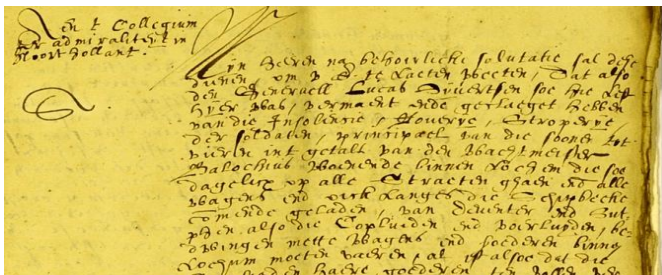 Aen t Collegium
ter admiraliteyt in
Noort Hollant.
Mijn Heeren na behoirlicke salutatie sal dese
dienen, om v te laeten weeten, dat alsoo
den Generael Lucas Sijvertsen soe hie lest
hijer was, vermaent ende geclaeget hebben
van die Insolentie, Roverije, Stroperije
der soldaten, principael van die soonen tot
vieren int getalt van den Wachtmeister
Balochius woenende binnen Lochem die soe
dagelix op alle Straeten ghaen end alle
wagens end oick langes die
comende geladen, van Deventer end Zut
phen, alsoe die Copluiden end voerluyden, be
dwingen mette wagens end goederen binnen
Lochum moeten vaeren, al alsoe dat die
haere goederen